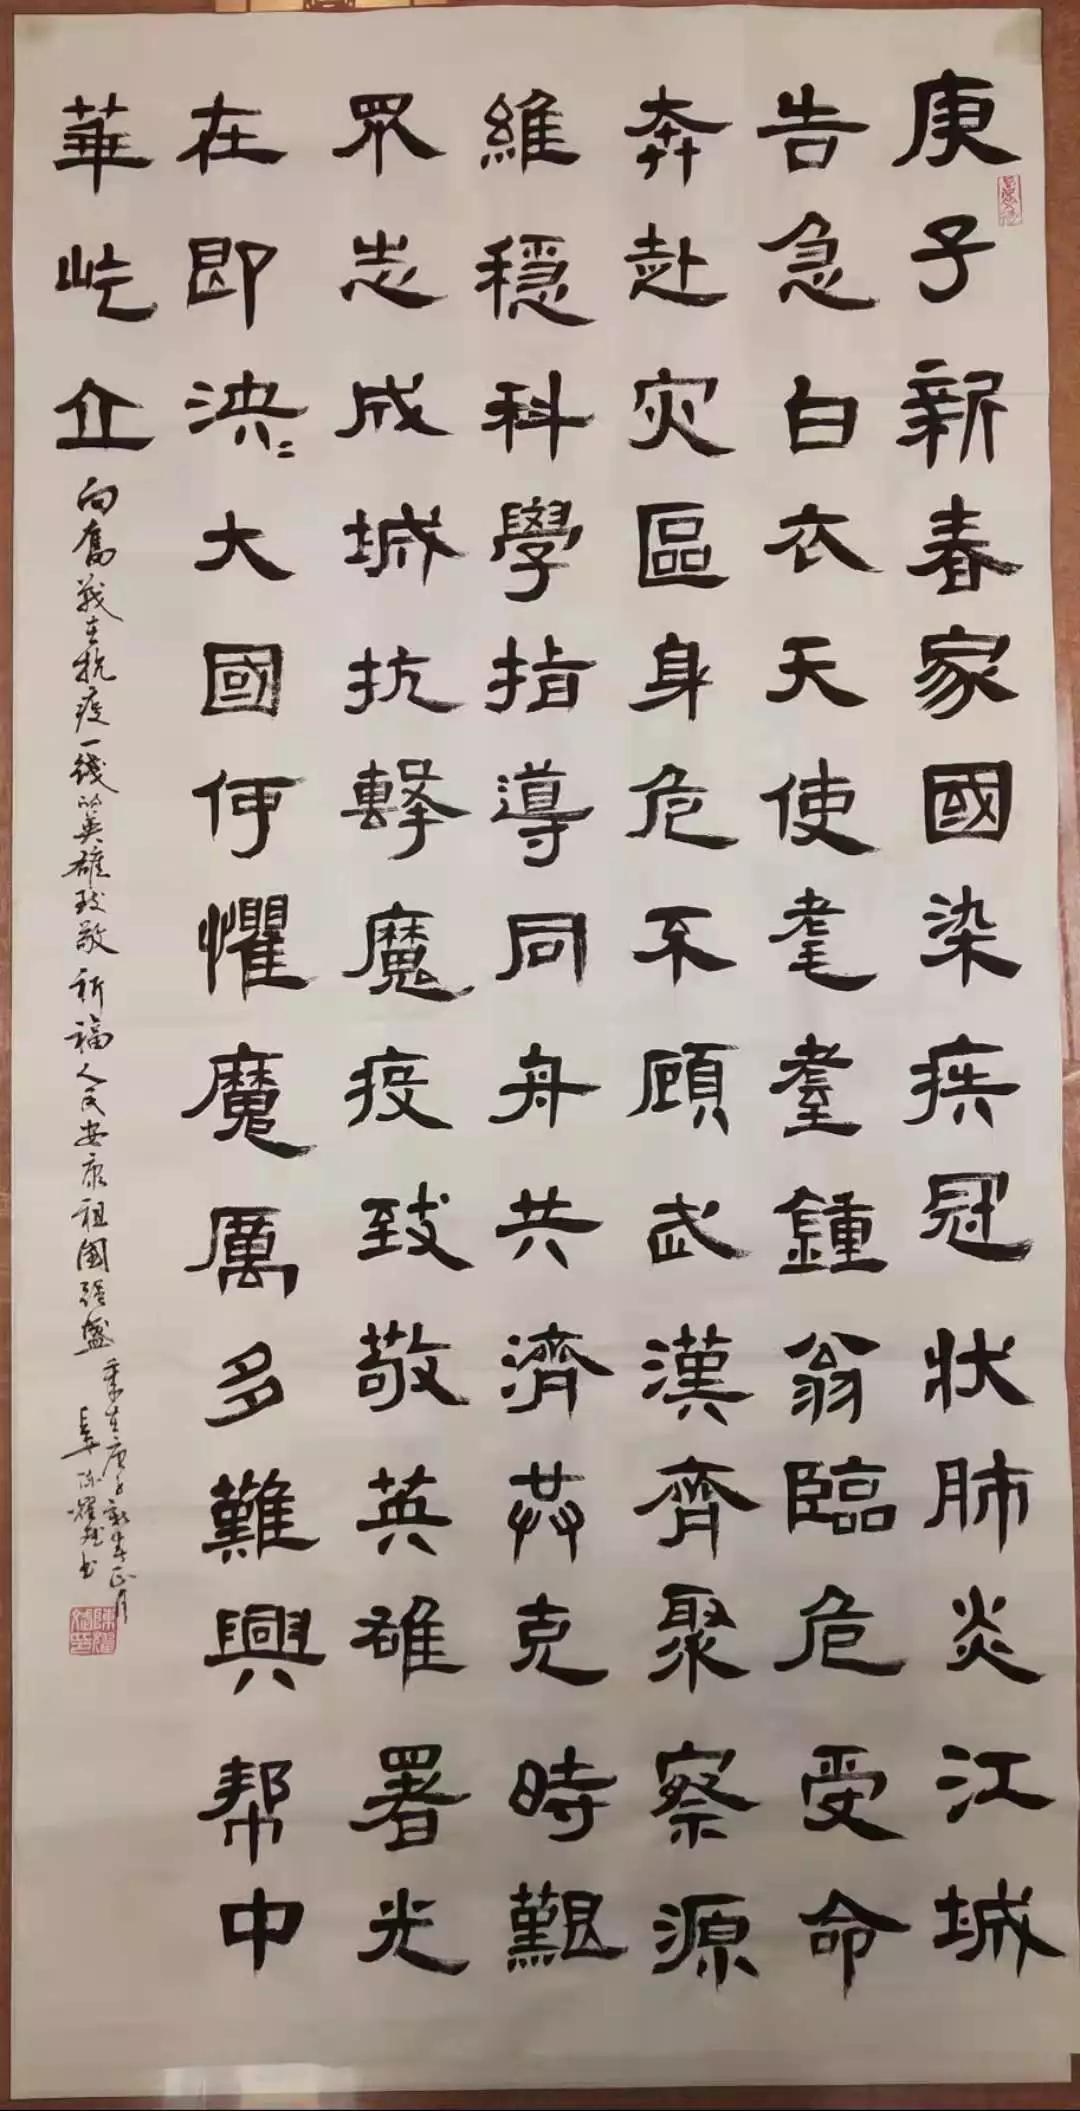 庚子新春家國染疾冠狀肺炎江城
告急白衣天使耄耋鍾翁臨危受命
奔赴灾區身危不顧武漢齊聚察源
維穩科學指導同舟共濟共克時艱
眾志成城抗擊魔疫致敬英雄署光
在即泱〻大國何懼魔厲多難興帮中
華屹立
向奮戰在抗疫一线的英雄致敬祈福人民安康祖國强盛
歲在庚子新春正月
陈耀 书